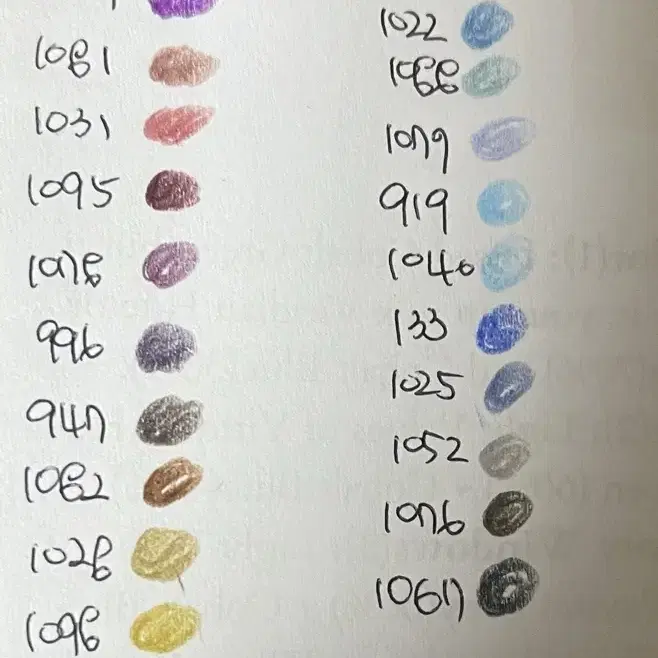 1081
1031
1095
1078
996
947
1082
1028
1098
1022
1088
1079
919
1040
133
1025
1052
1076
1067